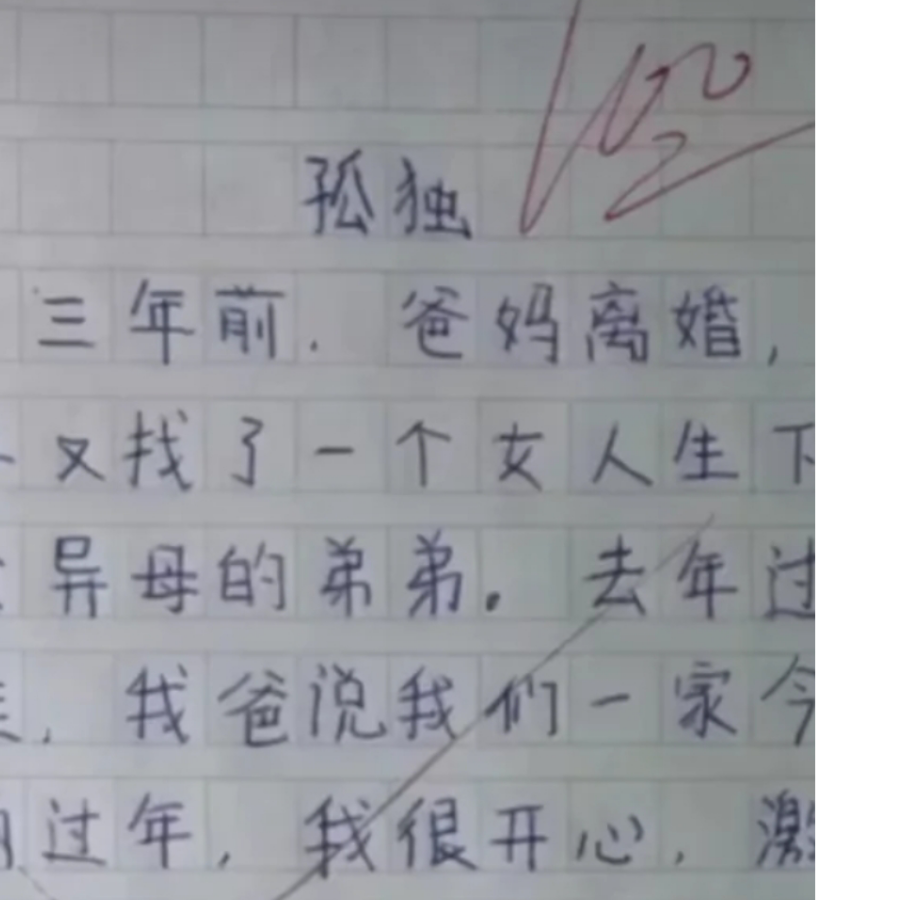 100
孤独
三年前. 爸妈离婚,
又找了一个女人生下
异母的弟弟。去年过
, 我爸说我们一家今
过年, 我很开心, 激